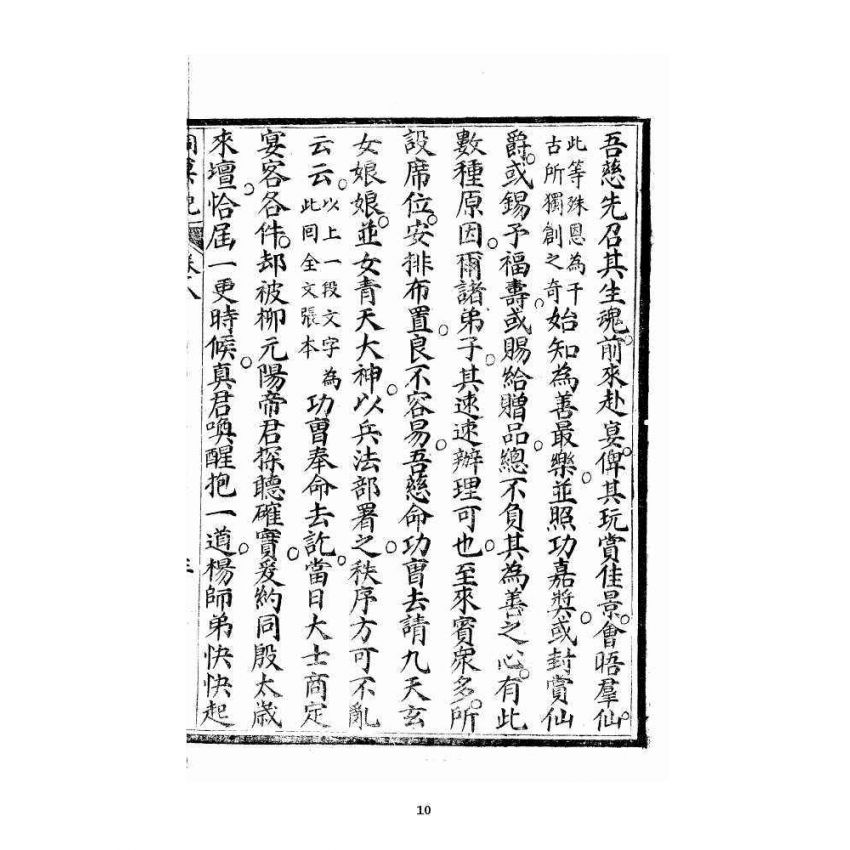 吾慈先召其生魂。前來赴宴。俾其玩賞佳景。會晤羣仙。
此等殊恩為千
古所獨創之奇
始知為善最樂。並照功嘉獎。或封賞仙
爵。或錫予福壽。或賜給贈品。總不負其為善之心。有此
數種原因。爾諸弟子。其速速辦理可也。至來賓衆多。所
設席位。安排布置。良不容易。吾慈命功曹去請九天玄
女娘娘。並女青天大神。以兵法部署之。秩序方可不亂
云云。
以上一段文字為
此回全文張本
功曹奉命去訖。當日大士商定
宴客各件。却被柳元陽帝君探聽確實。爰約同殷太歲
來壇。恰屆一更時候。真君喚醒抱一道。楊師弟快快起
洞冥記
卷八
三
10